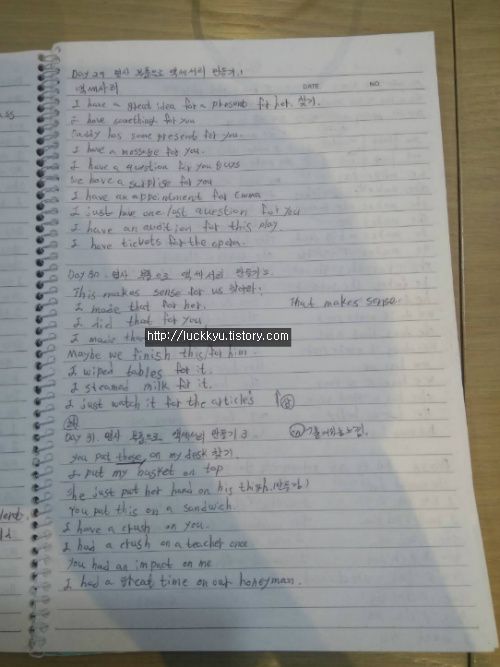 Day 29 명사 부품으로 액세서리 만들기 1
액세사리 DATE NO.
I have a great idea for a present for her. 찾기.
I have something for you
Daddy has some present for you.
I have a message for you.
I have a question for you guys
We have a surprise for you
I have an appointment for Emma
I just have one last question for you
I have an audition for this play.
I have tickets for the opera.
Day 30. 명사 부품으로 액세서리 만들기 2.
This makes sense for us
I made that for her. That makes sense.
I did that for you
I made
http://luckkyu.tistory.com
Maybe we finish this for him.
I wiped tables for it.
I steamed milk for it.
I just watch it for the article's
Day 31. 명사 부품으로 액세서리 만들기 3
you put those on my desk 찾기.
I put my basket on top
She just put her hand on his thigh.
You put this on a sandwich.
I have a crush on you.
I had a crush on a teacher once
You had an impact on me
I had a great time on our honeyman.